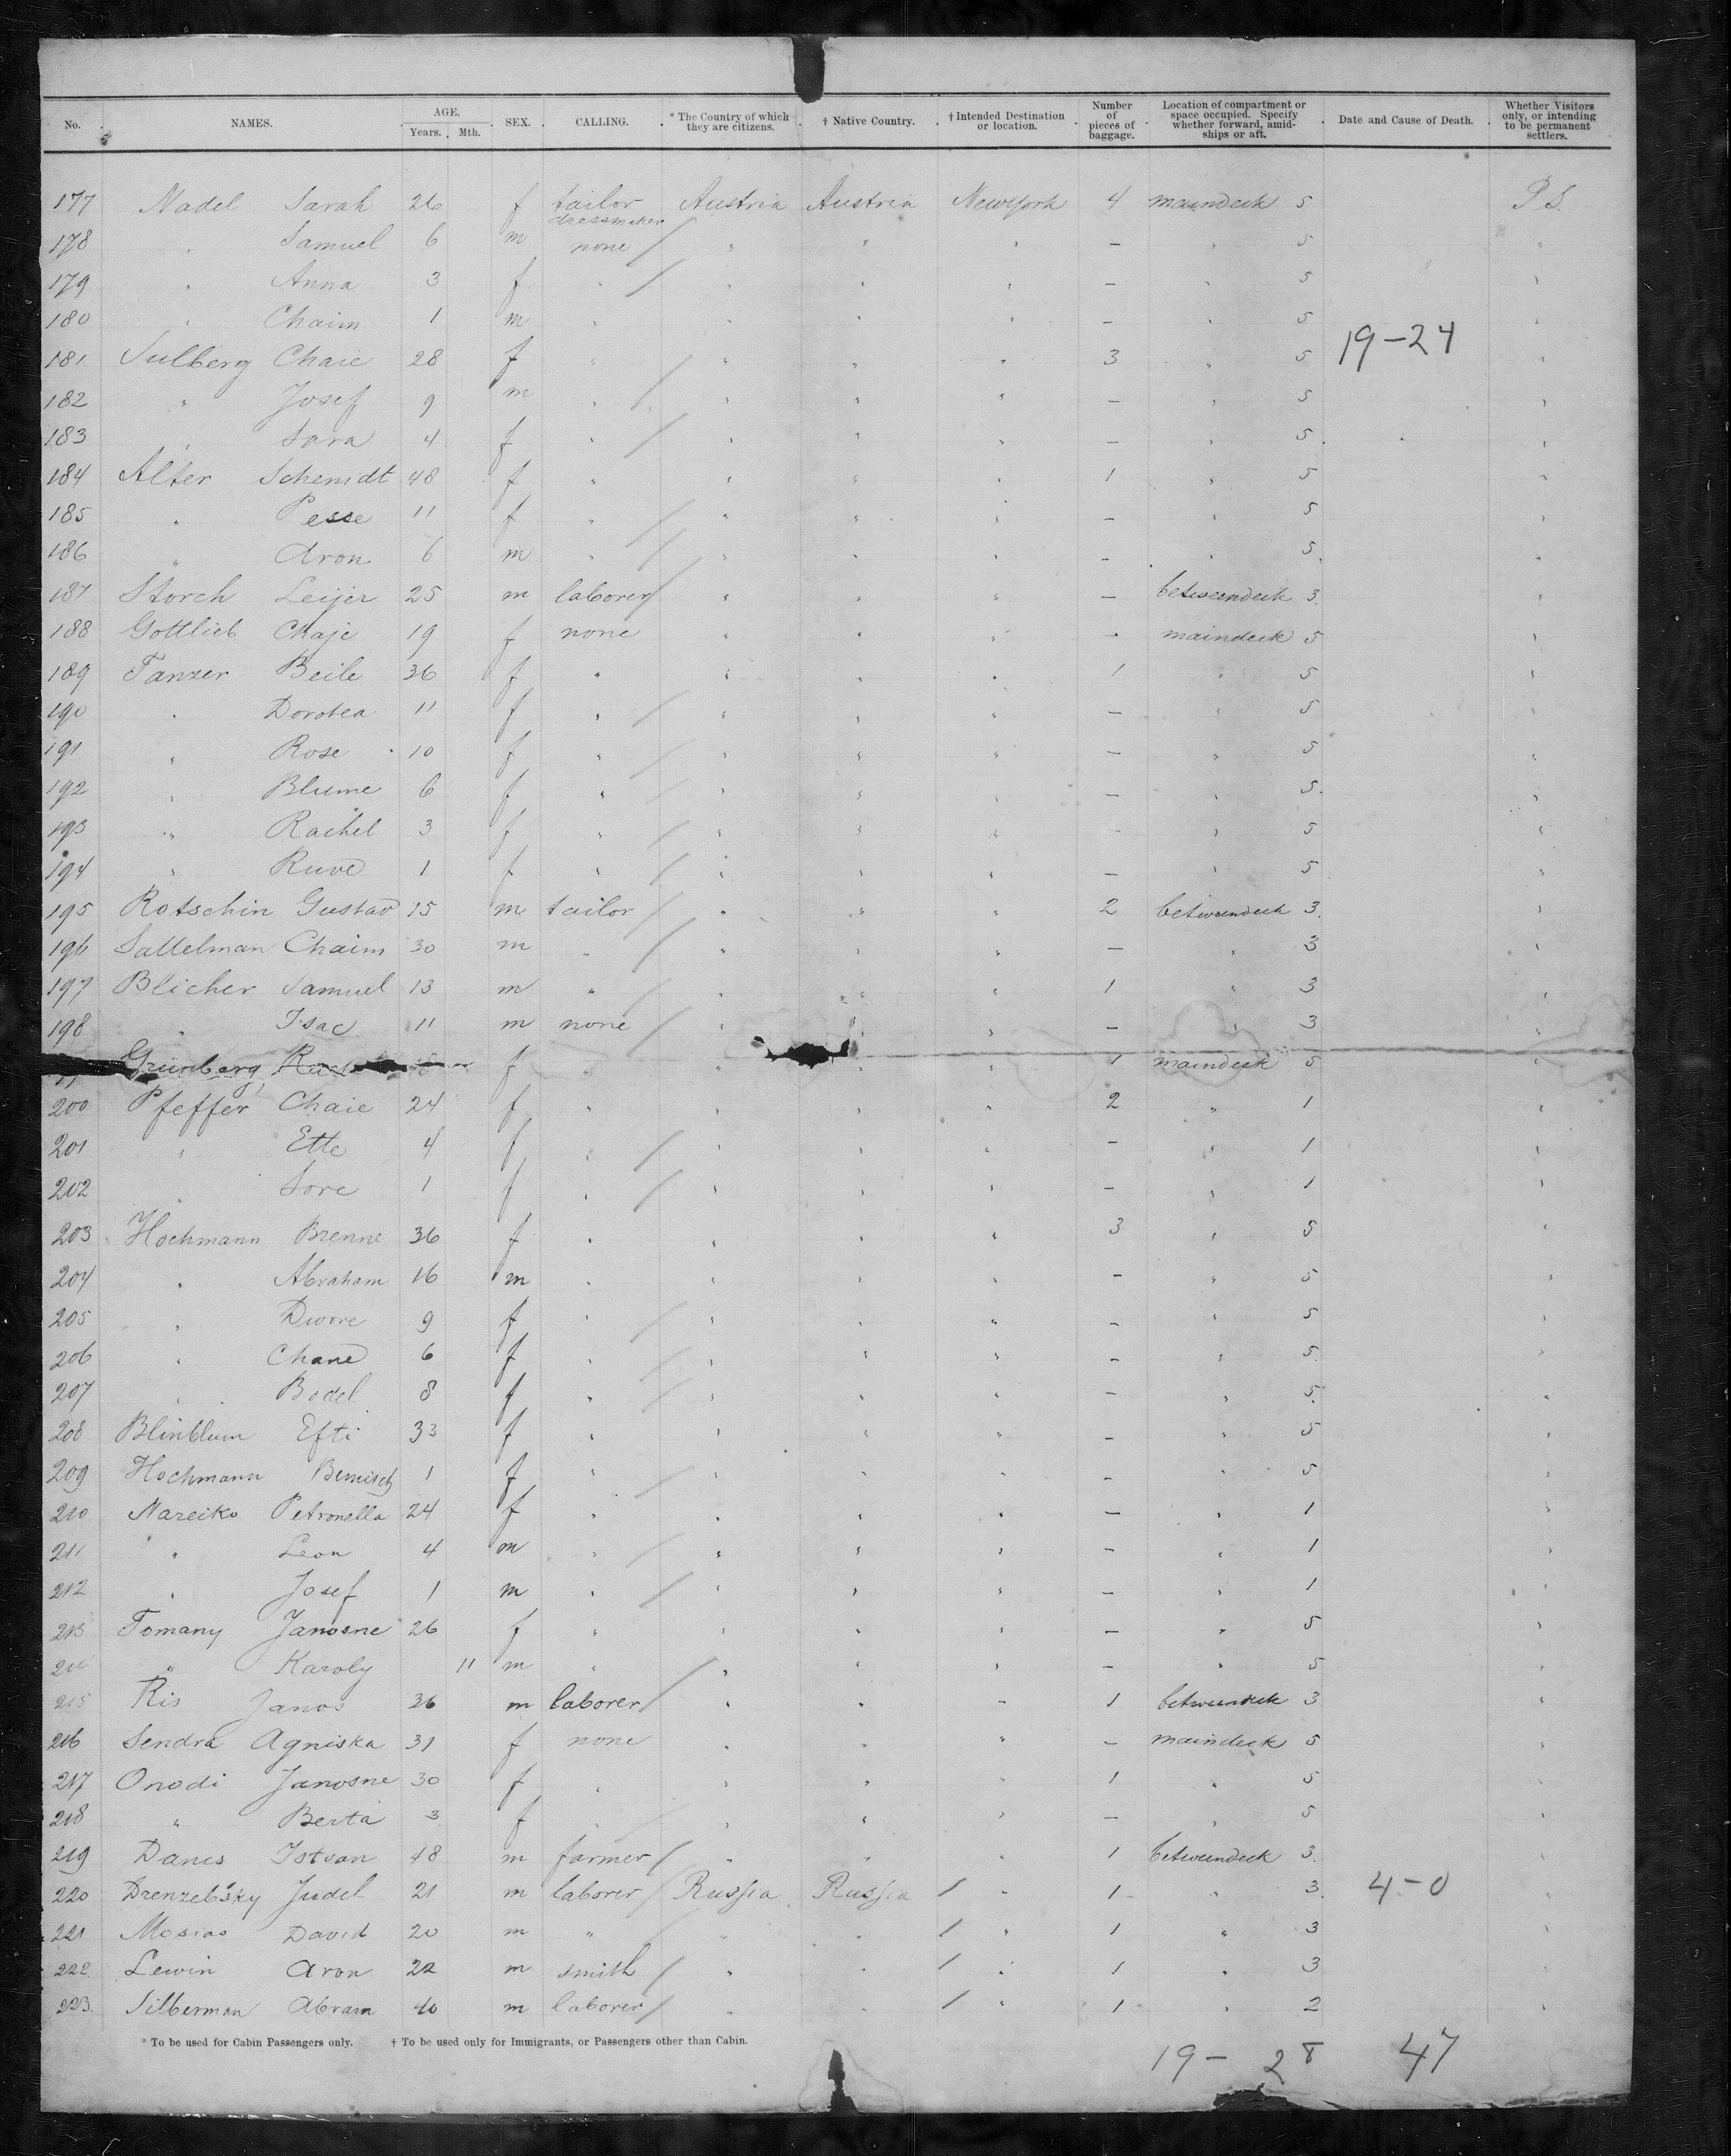 No. NAMES. AGE. Years. Mth. SEX. CALLING. * The Country of which they are citizens. † Native Country. † Intended Destination or location. Number of pieces of baggage. Location of compartment or space occupied. Specify whether forward, amidships or aft. Date and Cause of Death. Whether Visitors only, or intending to be permanent settlers.
177 Nadel Sarah 26 f tailor dressmaker Austria Austria New York 4 maindeck 5 P S.
178 " Samuel 6 m none " " " — " 5 "
179 " Anna 3 f " " " " — " 5 "
180 " Chaim 1 m " " " " — " 5 "
19-24
181 Sulberg Chaie 28 f " " " " 3 " 5 "
182 " Josef 9 m " " " " — " 5 "
183 " Sara 4 f " " " " — " 5 "
184 Alter Schemidt 48 f " " " " 1 " 5 "
185 " Pesse 11 f " " " " — " 5 "
186 " Aron 6 m " " " " — " 5 "
187 Storch Leijer 25 m laborer " " " — betweendeck 3 "
188 Gottlieb Chaje 19 f none " " " - maindeck 5 "
189 Tanzer Beile 36 f " " " " 1 " 5 "
190 " Dorotea 11 f " " " " — " 5 "
191 " Rose 10 f " " " " — " 5 "
192 " Blume 6 f " " " " — " 5 "
193 " Rachel 3 f " " " " — " 5 "
194 " Ruve 1 f " " " " — " 5 "
195 Rotschin Gustav 15 m tailor " " " 2 betweendeck 3 "
196 Sattelman Chaim 30 m " " " " — " 3 "
197 Blicher Samuel 13 m " " " " 1 " 3 "
198 " Isac 11 m none " " " — " 3 "
Grünberg f " " " " 1 maindeck 5 "
200 Pfeffer Chaie 24 f " " " " 2 " 1 "
201 " Ette 4 f " " " " — " 1 "
202 " Sore 1 f " " " " — " 1 "
203 Hochmann Brenne 36 f " " " " 3 " 5 "
204 " Abraham 16 m " " " " — " 5 "
205 " Dwore 9 f " " " " — " 5 "
206 " Chane 6 f " " " " — " 5 "
207 " Bodel 8 f " " " " — " 5 "
208 Blinblum Efti 33 f " " " " — " 5 "
209 Hochmann Bemisch 1 f " " " " — " 5 "
210 Mareiko Petronella 24 f " " " " — " 1 "
211 " Leon 4 m " " " " — " 1 "
212 " Josef 1 m " " " " — " 1 "
213 Tomany Janosne 26 f " " " " — " 5 "
214 " Karoly 11 m " " " " — " 5 "
215 Kis Janos 36 m laborer " " " 1 betweendeck 3 "
216 Sendra Agniska 31 f none " " " — maindeck 5 "
217 Onodi Janosne 30 f " " " " 1 " 5 "
218 " Berta 3 f " " " " — " 5 "
219 Danes Istvan 48 m farmer " " " 1 betweendeck 3 "
220 Drenzelisky Judel 21 m laborer Russia Russia " 1 " 3 4-0 "
221 Mosias David 20 m " " " " 1 " 3 "
222 Lewin Aron 22 m smith " " " 1 " 3 "
223. Silberman Abram 40 m laborer " " " 1 " 2 "
* To be used for Cabin Passengers only. † To be used only for Immigrants, or Passengers other than Cabin.
19 - 28 47